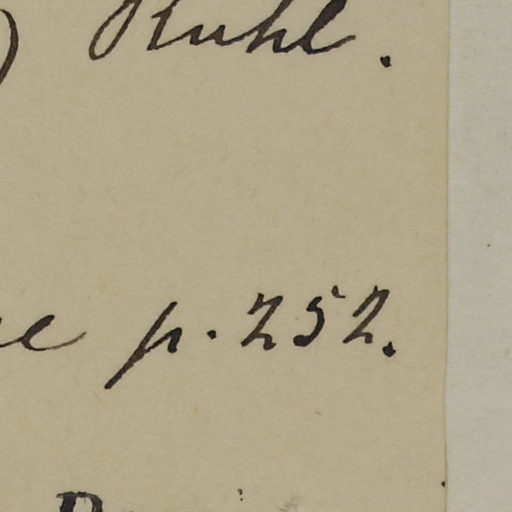 ) Kuhl.
p. 252.